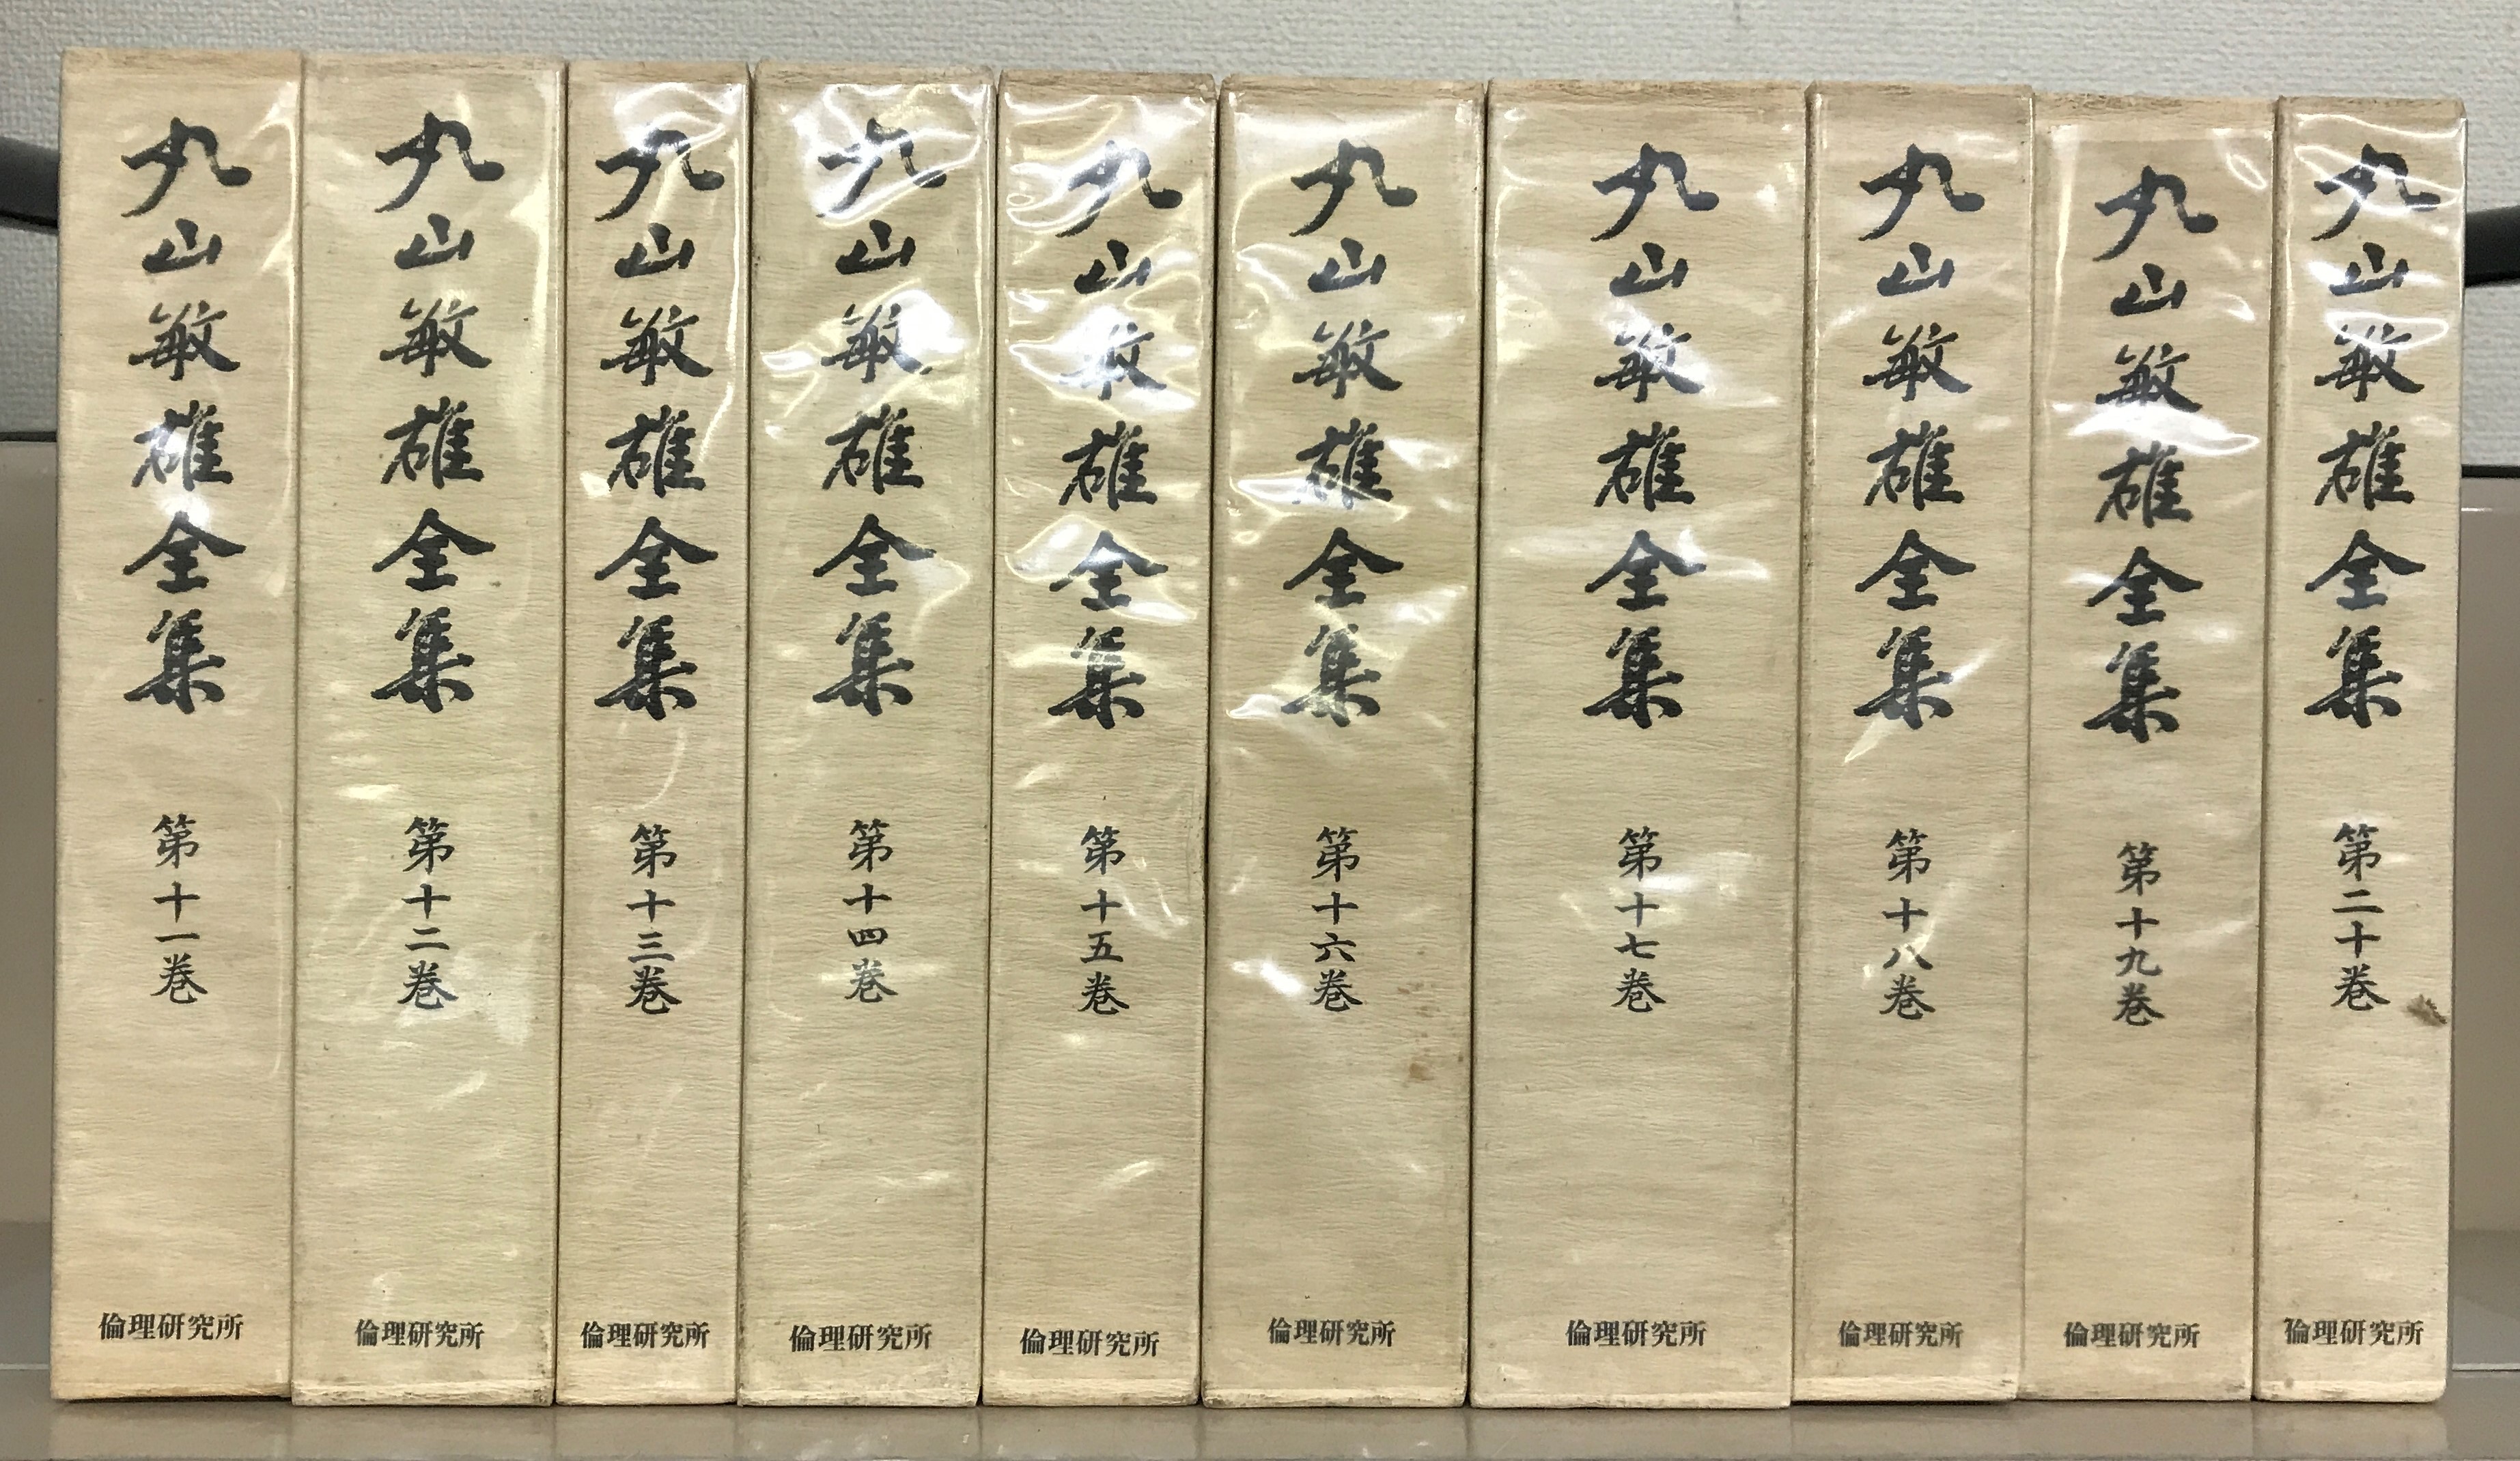 丸山敏雄全集 第十一巻
倫理研究所
丸山敏雄全集 第十二巻
倫理研究所
丸山敏雄全集 第十三巻
倫理研究所
丸山敏雄全集 第十四巻
倫理研究所
丸山敏雄全集 第十五巻
倫理研究所
丸山敏雄全集 第十六巻
倫理研究所
丸山敏雄全集 第十七巻
倫理研究所
丸山敏雄全集 第十八巻
倫理研究所
丸山敏雄全集 第十九巻
倫理研究所
丸山敏雄全集 第二十巻
倫理研究所